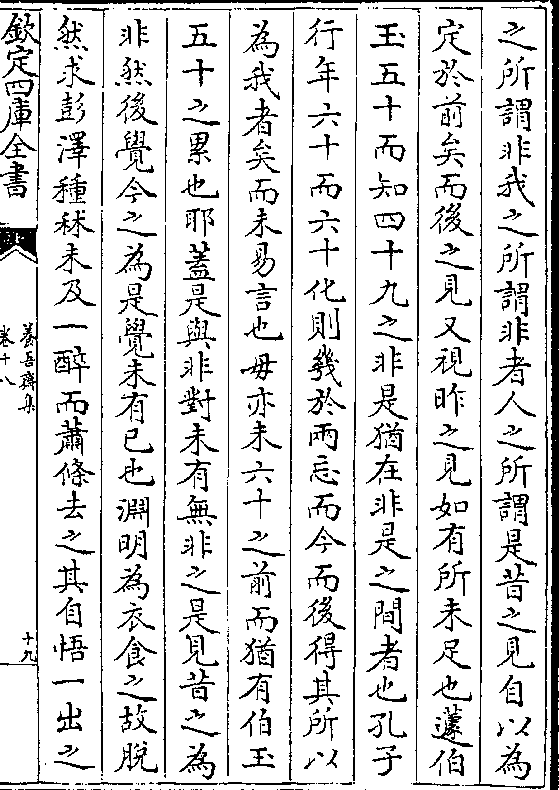 之所謂非我之所謂非者人之所謂是昔之見自以為
定於前矣而後之見又視昨之見如有所未足也蘧伯
玉五十而知四十九之非是猶在非是之間者也孔子
行年六十而六十化則幾於兩忘而今而後得其所以
為我者矣而未易言也毋亦未六十之前而猶有伯玉
五十之累也耶蓋是與非對未有無非之是見昔之為
非然後覺今之為是覺未有已也淵明為衣食之故脫
然求彭澤種秫未及一醉而蕭條去之其自悟一出之
欽定四庫全書
養吾齋集
卷十八
十九